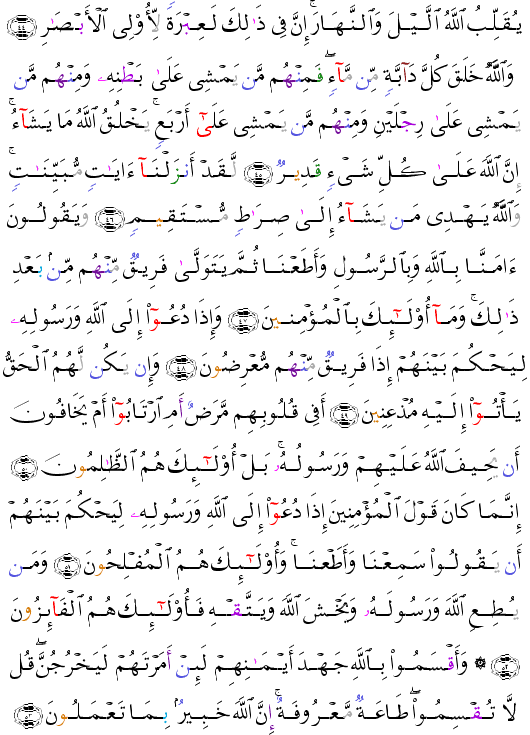 يُقَلِّبُ ٱللَّهُ ٱلَّيْلَ وَٱلنَّهَارَ ۚ إِنَّ فِى ذَٰلِكَ لَعِبْرَةً لِّأُو۟لِى ٱلْأَبْصَٰرِ ﴿٤٤﴾
وَٱللَّهُ خَلَقَ كُلَّ دَآبَّةٍ مِّن مَّآءٍ ۖ فَمِنْهُم مَّن يَمْشِى عَلَىٰ بَطْنِهِۦ وَمِنْهُم مَّن
يَمْشِى عَلَىٰ رِجْلَيْنِ وَمِنْهُم مَّن يَمْشِى عَلَىٰٓ أَرْبَعٍ ۚ يَخْلُقُ ٱللَّهُ مَا يَشَآءُ ۚ
إِنَّ ٱللَّهَ عَلَىٰ كُلِّ شَىْءٍ قَدِيرٌ ﴿٤٥﴾ لَّقَدْ أَنزَلْنَآ ءَايَٰتٍ مُّبَيِّنَٰتٍ ۚ
وَٱللَّهُ يَهْدِى مَن يَشَآءُ إِلَىٰ صِرَٰطٍ مُّسْتَقِيمٍ ﴿٤٦﴾ وَيَقُولُونَ
ءَامَنَّا بِٱللَّهِ وَبِٱلرَّسُولِ وَأَطَعْنَا ثُمَّ يَتَوَلَّىٰ فَرِيقٌ مِّنْهُم مِّنۢ بَعْدِ
ذَٰلِكَ ۚ وَمَآ أُو۟لَٰٓئِكَ بِٱلْمُؤْمِنِينَ ﴿٤٧﴾ وَإِذَا دُعُوٓا۟ إِلَى ٱللَّهِ وَرَسُولِهِۦ
لِيَحْكُمَ بَيْنَهُمْ إِذَا فَرِيقٌ مِّنْهُم مُّعْرِضُونَ ﴿٤٨﴾ وَإِن يَكُن لَّهُمُ ٱلْحَقُّ
يَأْتُوٓا۟ إِلَيْهِ مُذْعِنِينَ ﴿٤٩﴾ أَفِى قُلُوبِهِم مَّرَضٌ أَمِ ٱرْتَابُوٓا۟ أَمْ يَخَافُونَ
أَن يَحِيفَ ٱللَّهُ عَلَيْهِمْ وَرَسُولُهُۥ ۚ بَلْ أُو۟لَٰٓئِكَ هُمُ ٱلظَّٰلِمُونَ ﴿٥٠﴾
إِنَّمَا كَانَ قَوْلَ ٱلْمُؤْمِنِينَ إِذَا دُعُوٓا۟ إِلَى ٱللَّهِ وَرَسُولِهِۦ لِيَحْكُمَ بَيْنَهُمْ
أَن يَقُولُوا۟ سَمِعْنَا وَأَطَعْنَا ۚ وَأُو۟لَٰٓئِكَ هُمُ ٱلْمُفْلِحُونَ ﴿٥١﴾ وَمَن
يُطِعِ ٱللَّهَ وَرَسُولَهُۥ وَيَخْشَ ٱللَّهَ وَيَتَّقْهِ فَأُو۟لَٰٓئِكَ هُمُ ٱلْفَآئِزُونَ
﴿٥٢﴾ ۞ وَأَقْسَمُوا۟ بِٱللَّهِ جَهْدَ أَيْمَٰنِهِمْ لَئِنْ أَمَرْتَهُمْ لَيَخْرُجُنَّ ۖ قُل
لَّا تُقْسِمُوا۟ ۖ طَاعَةٌ مَّعْرُوفَةٌ ۚ إِنَّ ٱللَّهَ خَبِيرٌۢ بِمَا تَعْمَلُونَ ﴿٥٣﴾